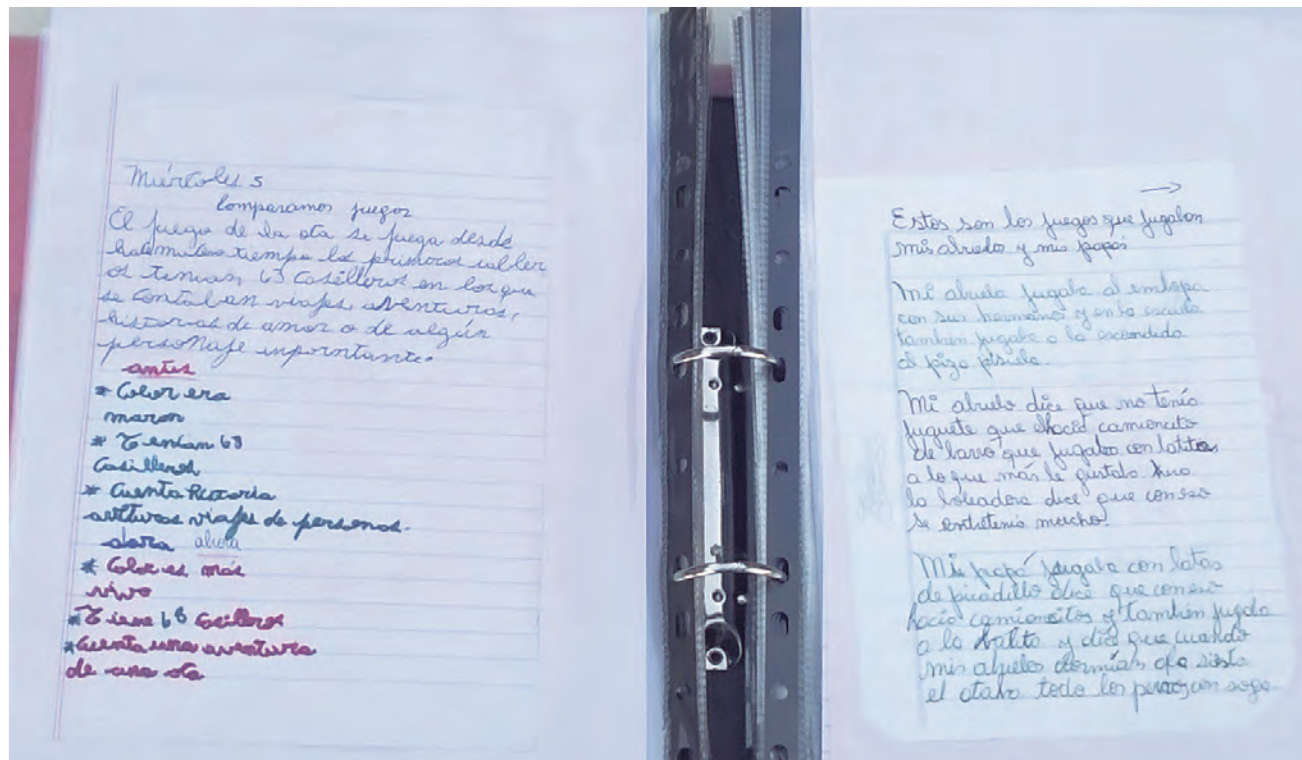 Miércoles 5
Comparamos juegos
El juego de la oca se juega desde
hace mucho tiempo los primeros tabler
os tenian 63 casilleros en los que
se contaban viajes, aventuras,
historias de amor o de algún
personaje inporntante.
antes
* Color era
maron
* Tenian 63
Casilleros
* Cuenta
viajes de personas.
ahora
* Color es más
vivo
* Tiene 63
* Cuenta una aventura
de una oca
→
Estos son los juegos que jugaban
mis abuelos y mis papás
Mi abuela jugaba al
con sus hermanos y en la escuela
tambien jugaba a la escondida
al
Mi abuelo dice que no tenia
juguete que hacia camioncito
de barro que jugaba con latitas
a lo que más le gustaba
la boleadora dice que con eso
se entretenia mucho.
Mi papá jugaba con latas
de picadillo dice que con eso
hacia camioncitos y tambien jugaba
a la bolita y dice que cuando
mis abuelos dormian la siesta
el ataba todo los perros con soga.